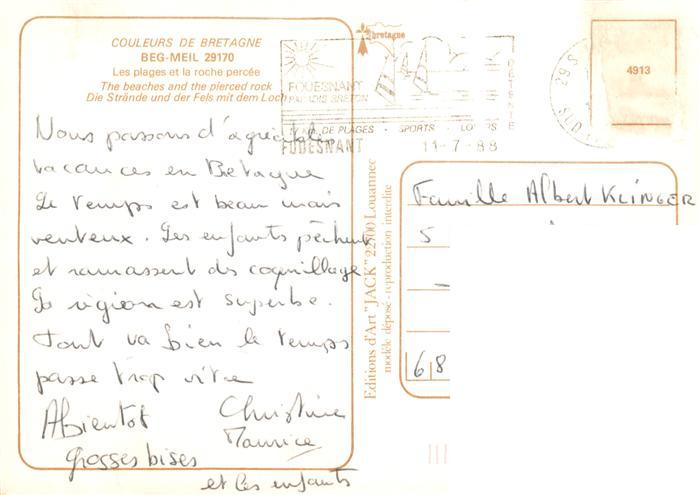 COULEURS DE BRETAGNE
BEG-MEIL 29170
Les plages et la roche percée
The beaches and the pierced rock
Die Strände und der Fels mit dem Loch
bretagne
FOUESNANT
PARADIS BRETON
KM DE PLAGES - SPORTS - LOISIRS
FOUESNANT 11-7-88
29 S
4913
Nous passons d'agréables
vacances en Bretagne
Le temps est beau mais
venteux. Les enfants pêchent
et ramassent des coquillage
La région est superbe.
Tout va bien le temps
passe trop vite
A bientot Christine
Maurice
grosses bises
et les enfants
Editions d'Art "JACK" 22700 Louannec
modèle déposé - reproduction interdite
Famille Albert KLINGER
5
68